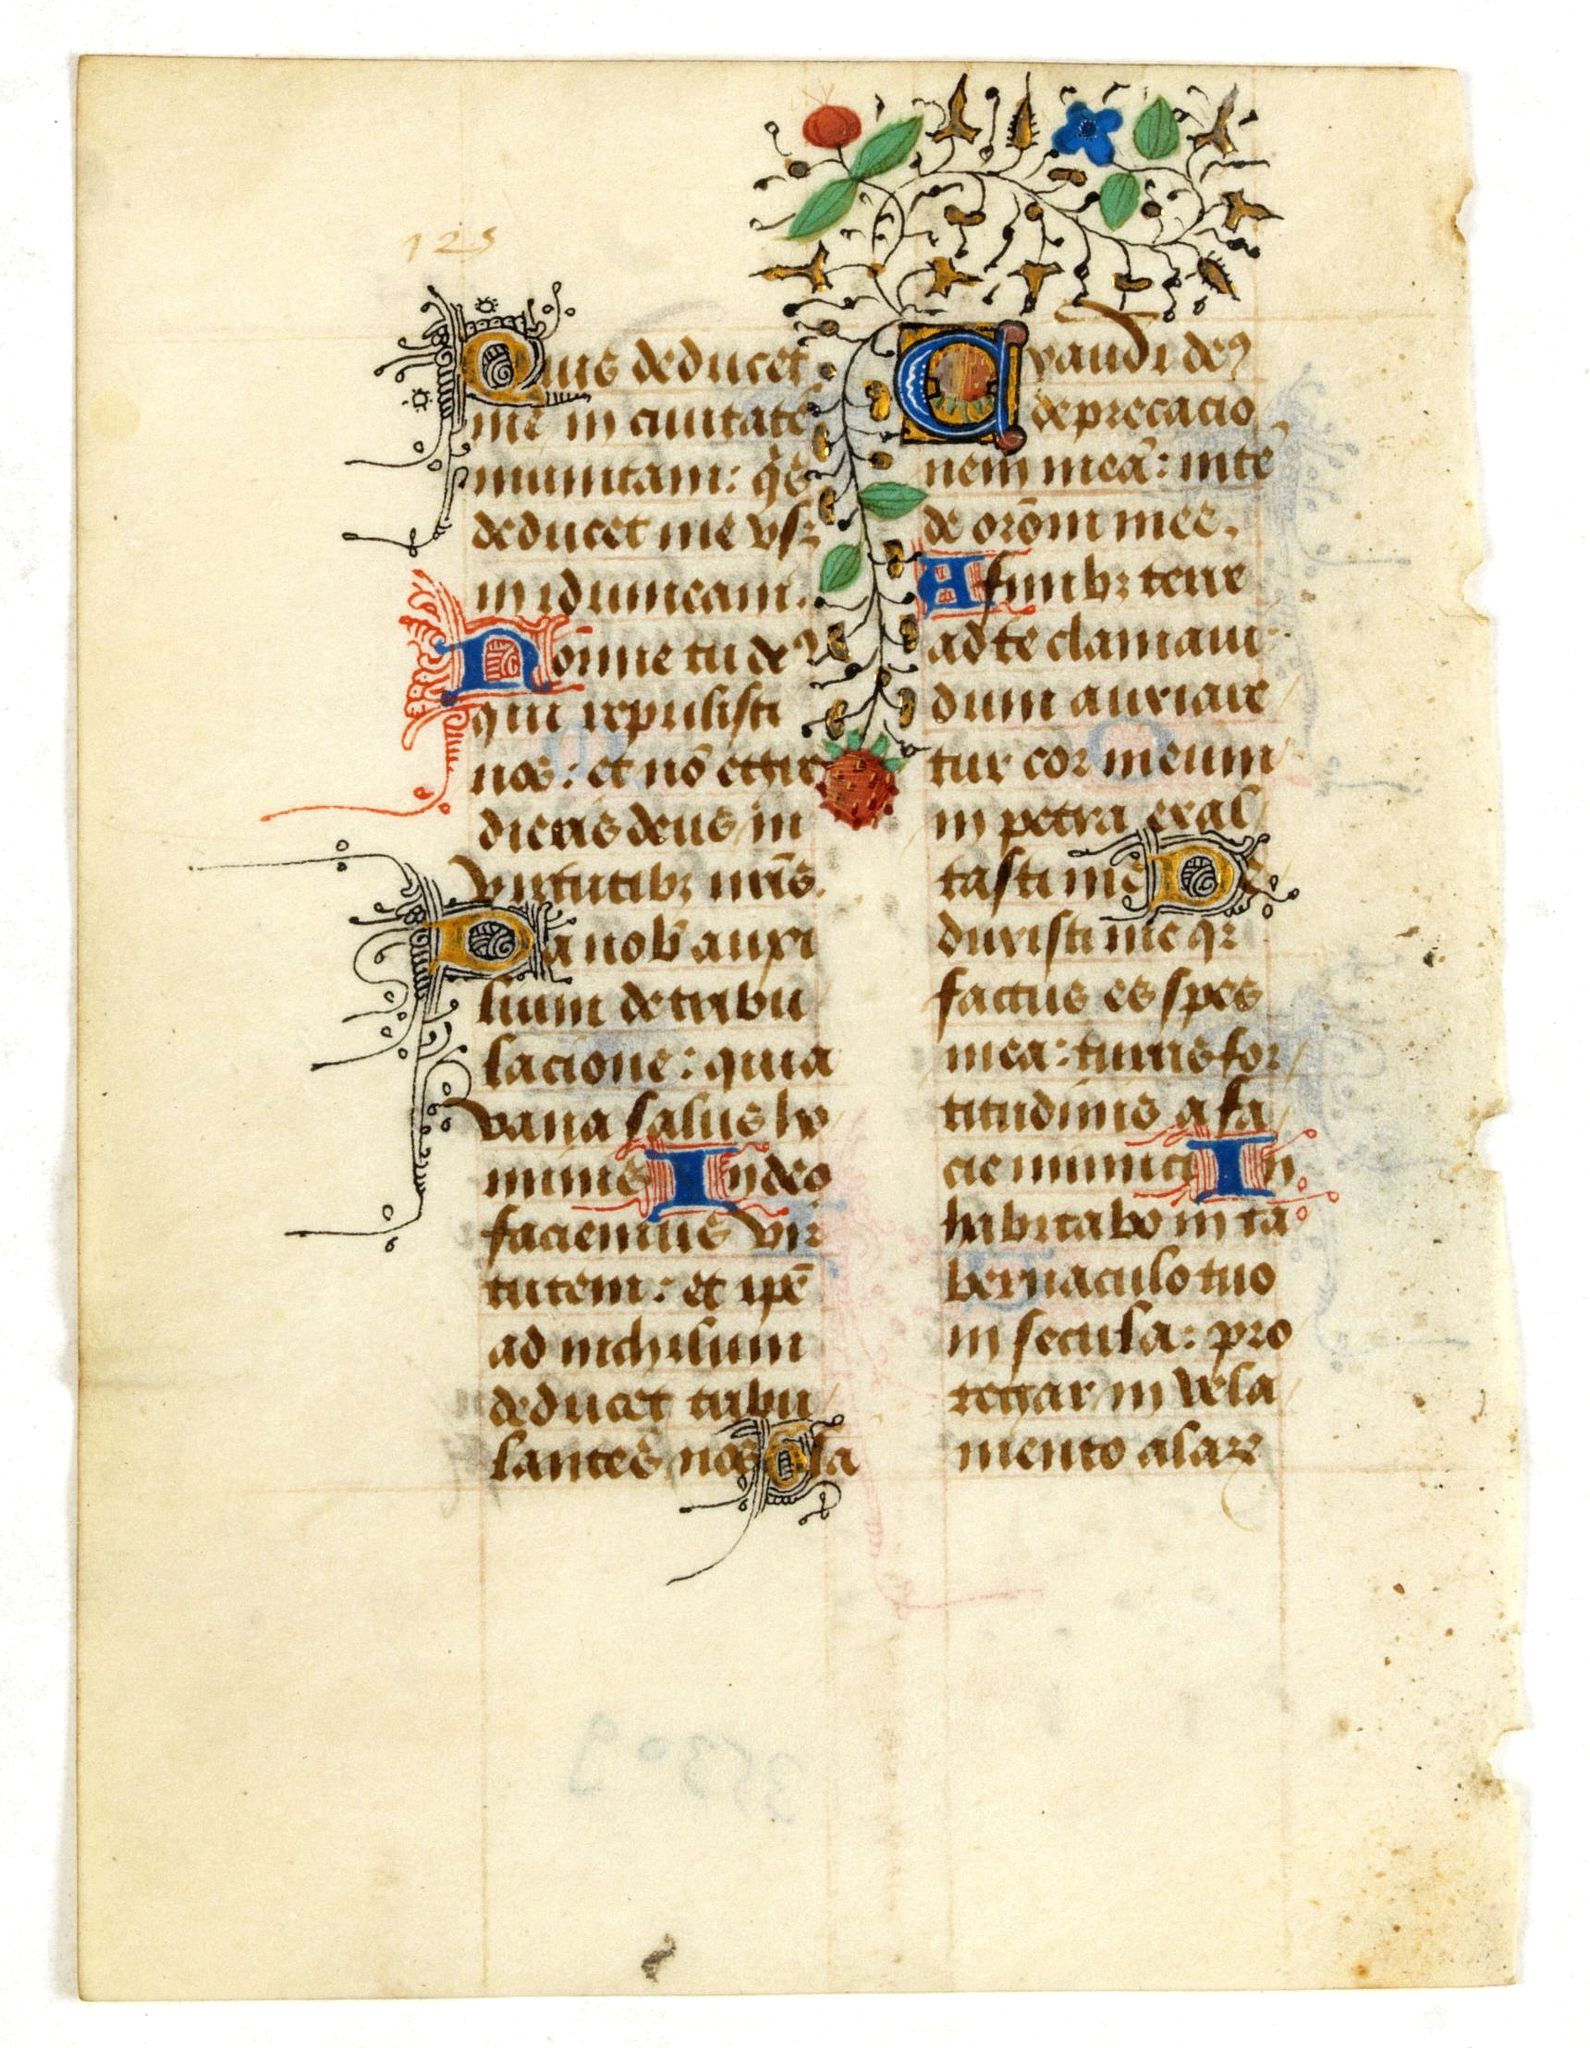 125
Quis deducet
me in ciuitatē
munitam: q̇s
deducet me vsꝫ
in idumeam.
Nōnne tu deꝰ
qui repulisti
nos: et nō egre
dieris deus in
virtutibꝫ nrīs.
Da nob̄ auxi
lium de tribu
lacione: quia
vana salus ho
minis In deo
faciemus vir
tutem: et ip̄e
ad nichilum
deducet tribu
lantes nos Gła
Exaudi deꝰ
deprecacio
nem meā: intē
de orōni mee.
A finibꝫ terre
ad te clamaui
dum anxiare
tur cor meum
in petra exal
tasti me De
duxisti me qꝛ
factus es spes
mea: turris for
titudinis a fa
cie inimici In
habitabo in ta
bernaculo tuo
in secula: pro
tegar in vela
mento alaꝝ
35309